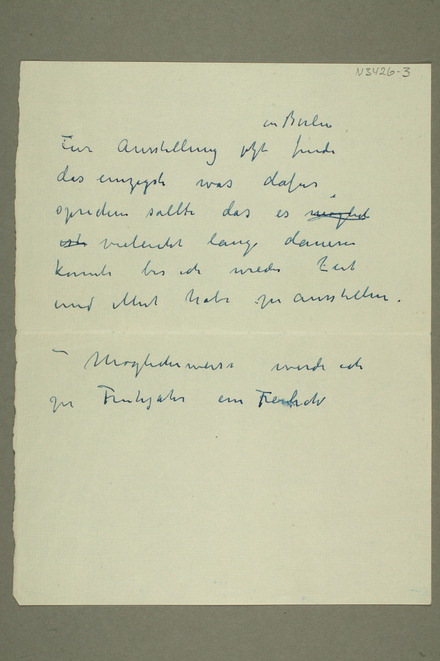 N3426-3
in Berlin
Eine Ausstellung jetzt finde
das einzigste was dafür
sprechen sollte das es möglich
ist vieleicht lange dauern
konnte bis ich wieder Zeit
und Mut habe zu ausstellen.
– Möglicherweise werde ich
zu Frühjahr ein